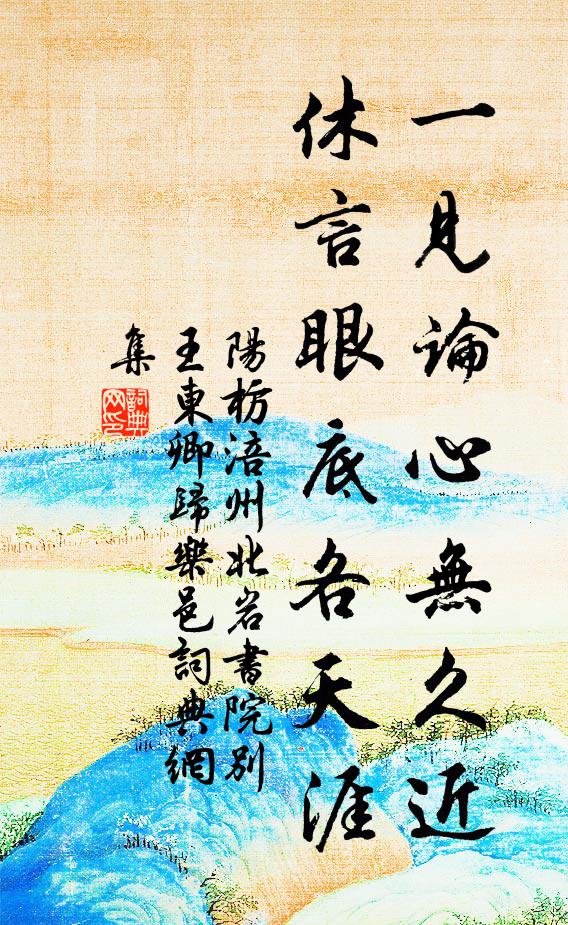 一見論心無久近
休言眼底各天涯
陽枋涪州北岩書院別
王東卿歸樂邑詞典網
集
詞典
网印